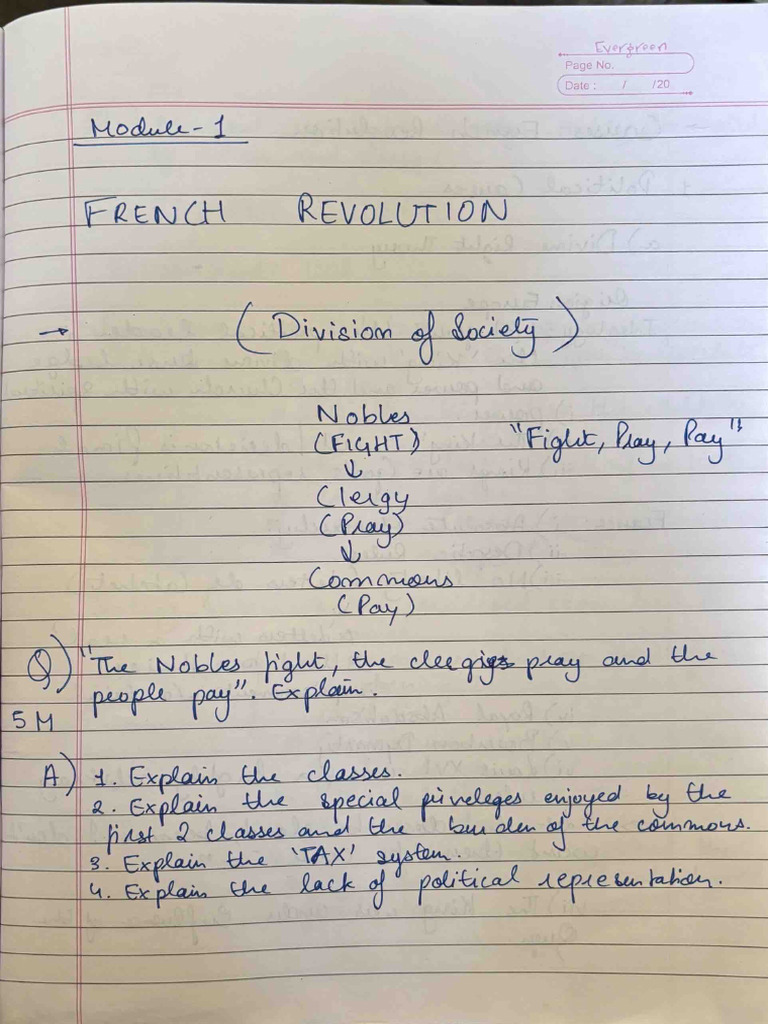 Evergreen
Page No.
Date : / /20
Module - 1
FRENCH REVOLUTION
→ (Division of Society)
Nobles
(FIGHT) "Fight, Pray, Pay"
↓
Clergy
(Pray)
↓
Commons
(Pay)
Q) "The Nobles fight, the clergies pray and the
people pay". Explain.
5 M
A) 1. Explain the classes.
2. Explain the special priveleges enjoyed by the
first 2 classes and the burden of the commons.
3. Explain the 'TAX' system.
4. Explain the lack of political representation.